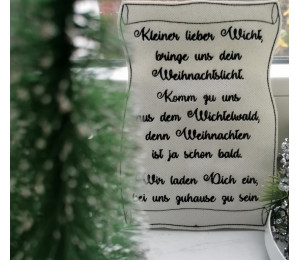 Kleiner lieber Wicht,
bringe uns dein
Weihnachtslicht.
Komm zu uns
aus dem Wichtelwald,
denn Weihnachten
ist ja schon bald.
Wir laden Dich ein,
bei uns zuhause zu sein.